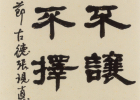 不讓
不擇
節古德張